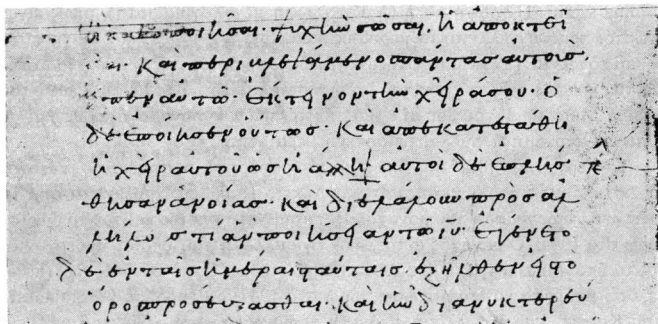 ἢ κακοποιῆσαι· ψυχὴν σῶσαι, ἢ ἀποκτεῖ
ναι· καὶ περιβλεψάμενος πάντας αὐτοὺς
εἶπεν αὐτῶ· ἔκτεινον τὴν χεῖρά σου· ὁ
δὲ ἐποίησεν οὕτως· καὶ ἀπεκατεστάθη
ἡ χεὶρ αὐτοῦ ὡς ἡ ἄλλη· αὐτοὶ δὲ ἐπλήσ
θησαν ἀνοίας· καὶ διελάλουν πρὸς ἀλ
λήλους τί ἂν ποιήσειαν τῶ ιῦ· ἐγένετο
δὲ ἐν ταῖς ἡμέραις ταύταις ἐξῆλθεν εἰς τὸ
ὄρος προσεύξασθαι· καὶ ἦν διανυκτερεύ